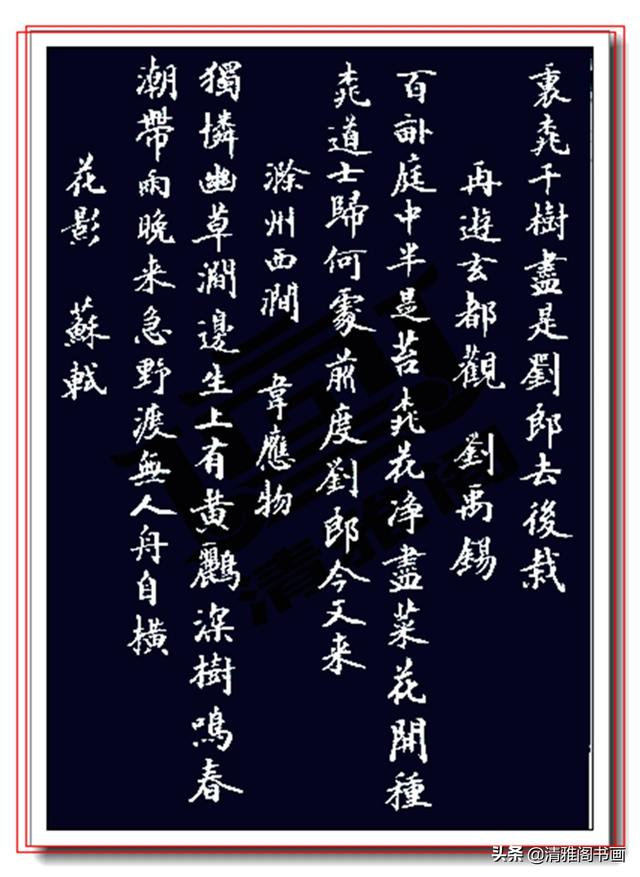 裏桃千樹盡是劉郎去後栽
再遊玄都觀 劉禹錫
百畝庭中半是苔桃花淨盡菜花開種
桃道士歸何處前度劉郎今又来
滁州西澗 韋應物
獨憐幽草澗邊生上有黃鸝深樹鳴春
潮帶雨晚来急野渡無人舟自橫
花影 蘇軾
清雅阁
头条 @清雅阁书画